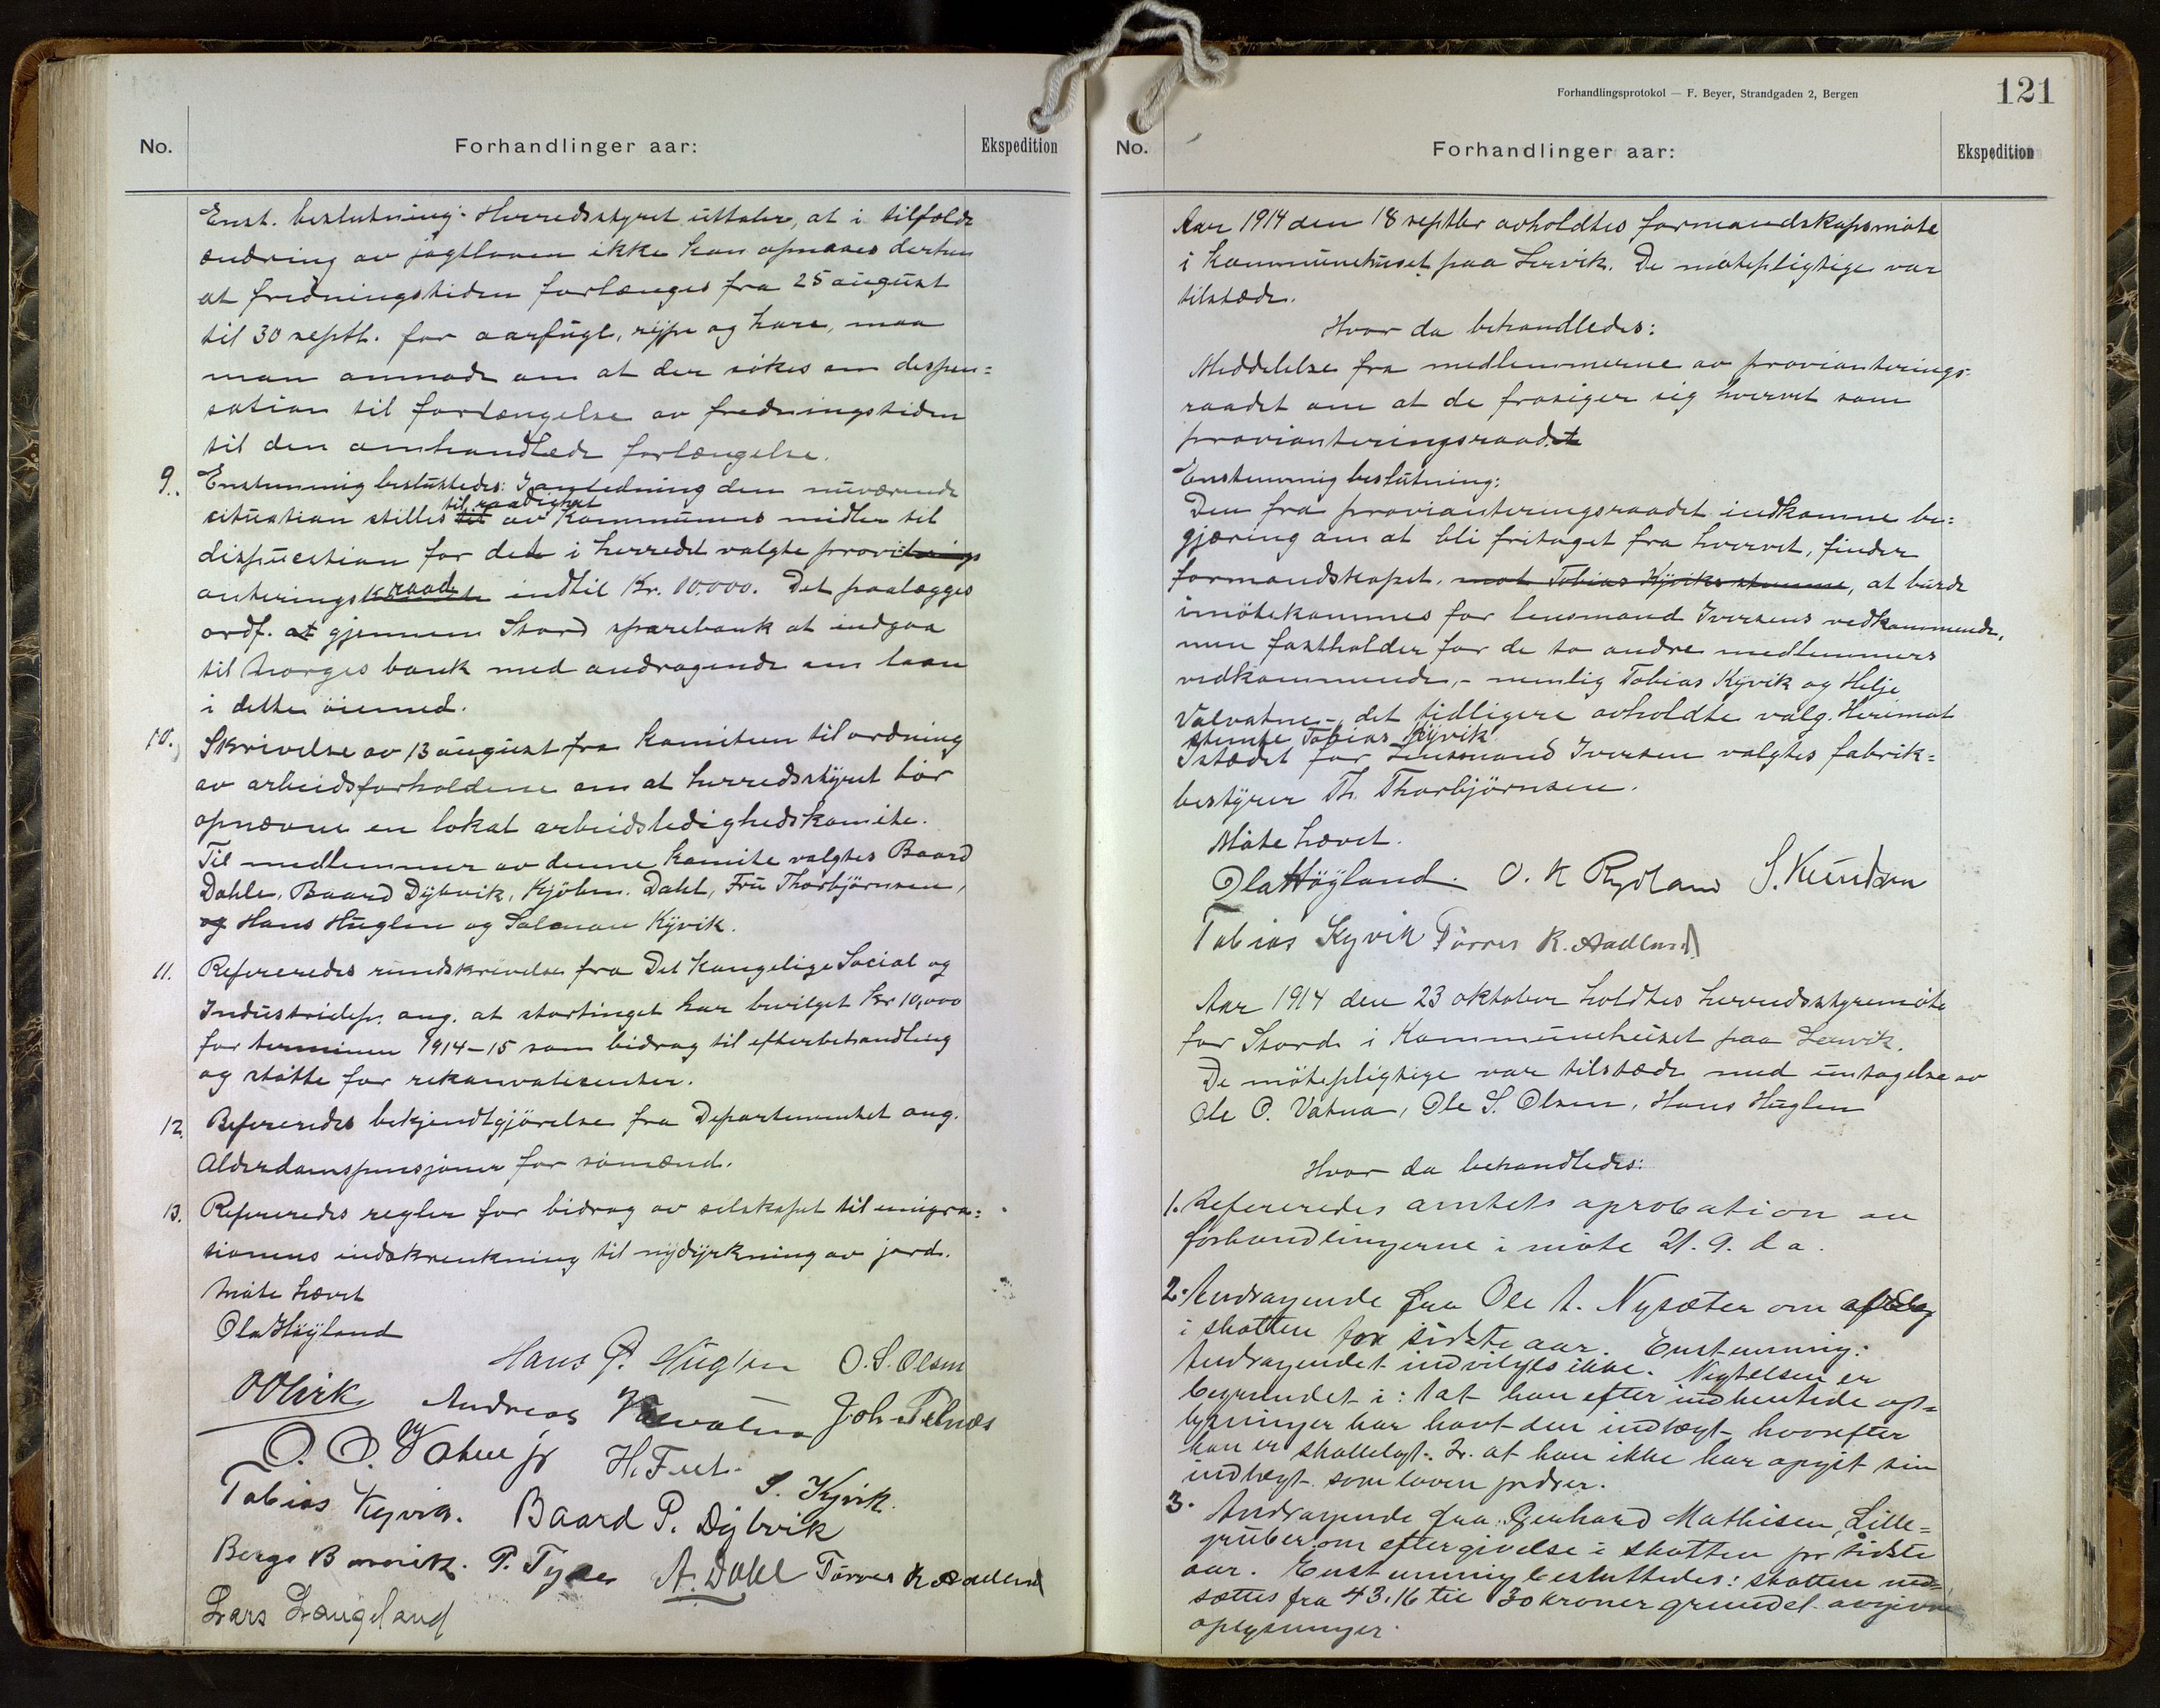 No.
Forhandlinger aar:
Ekspedition
Enst. beslutning: Herredsstyret uttaler, at i tilfælde
ændring av jagtloven ikke kan opnaaes derhen
at fredningstiden forlænges fra 25 august
til 30 septb. for aarfugl, rype og hare, maa
man anmode om at der søkes om dispen=
sation til forlængelse av fredningstiden
til den omhandlede forlængelse.
9. Enstemmig besluttedes: I anledning den nuværende
til raadighet
situation stilles til av kommunens midler til
disposition for det i herredet valgte proviterings
anteringskraad indtil Kr. 10.000. Det paalægges
ordf. at gjennem Stord sparebank at indgaa
til Norges bank med andragende om laan
i dette øiemed.
10. Skrivelse av 13 august fra komiteen til ordning
av arbeidsforholdene om at herredsstyret bør
opnævne en lokal arbeidsledighedskomite.
Til medlemmer av denne komite valgtes Baard
Dahle, Baard Dybvik, Kjøbm. Dahl, Fru Thorbjørnsen,
og Hans Huglen og Salomon Kyvik.
11. Refereredes rundskrivelse fra Det Kongelige Social og
Industridep. ang. at stortinget har bevilget kr 10,000
for terminen 1914-15 som bidrag til efterbehandling
og støtte for rekonvalesenter.
12. Refereredes bekjendtgjørelse fra Departementet ang.
Alderdomspensjoner for sømænd.
13. Refereredes regler for bidrag av selskapet til emigra=
tionens indskrenkning til nydyrkning av jord.
Møte hævet
Ola Høyland
Hans P. Huglen O. S. Olsen
Andreas Valvatna Joh. Telnæs
O. O. Vatne jr H. Fret.
Tobias Kyvik. S. Kyvik.
Baard P. Dybvik
Berge P. Tyse A. Dahl Tørres K Aadland
Lars Langeland
Forhandlingsprotokol — F. Beyer, Strandgaden 2, Bergen
121
No.
Forhandlinger aar:
Ekspedition
Aar 1914 den 18 septbr avholdtes formandskapsmøte
i kommunehuset paa Lervik. De møtepligtige var
tilstæde.
Hvor da behandledes:
Meddelelse fra medlemmerne av provianterings-
raadet om at de frasiger sig hvervet som
provianteringsraadet
Enstemmig beslutning:
Den fra provianteringsraadet indkomne be=
gjæring om at bli fritaget fra hvervet, finder
formandskapet, mot Tobias Kyviks stemme, at burde
imøtekommes for lensmand Iversens vedkommende,
men fastholder for de to andre medlemmers
vedkommende, - nemlig Tobias Kyvik og Helje
Valvatne - det tidligere avholdte valg. Herimot
stemte Tobias Kyvik
Istædet for Lensmand Iversen valgtes fabrik=
bestyrer Th. Thorbjørnsen.
Møte hævet.
Ola Høyland. O. K Rydland S. Knudsen
Tobias Kyvik Tørres K. Aadland
Aar 1914 den 23 oktober holdtes herredsstyremøte
for Stord i Kommunehuset paa Lervik.
De møtepligtige var tilstæde med untagelse av
Ole O. Vatna, Ole S. Olsen, Hans Huglen
Hvor da behandledes:
1. Refereredes amtets aprobation av
forhandlingerne i møte 21. 9. d a.
2. Andragende fra Ole A. Nysæter om afslag
i skatten for sidste aar. Enstemmig:
Andragendet indvilges ikke. Negtelsen er
begrundet i: 1 at han efter indhentede op=
lysninger har havt den indtægt hvorefter
han er skattelagt. 2. at han ikke har opgit sin
indtægt som loven fordrer.
3. Andragende fra Gerhard Mathisen, Lille=
gruben om eftergivelse i skatten for sidste
aar. Enstemmig besluttedes: skatten ned=
sættes fra 43,16 til 30 kroner grundet avgivne
oplysninger.